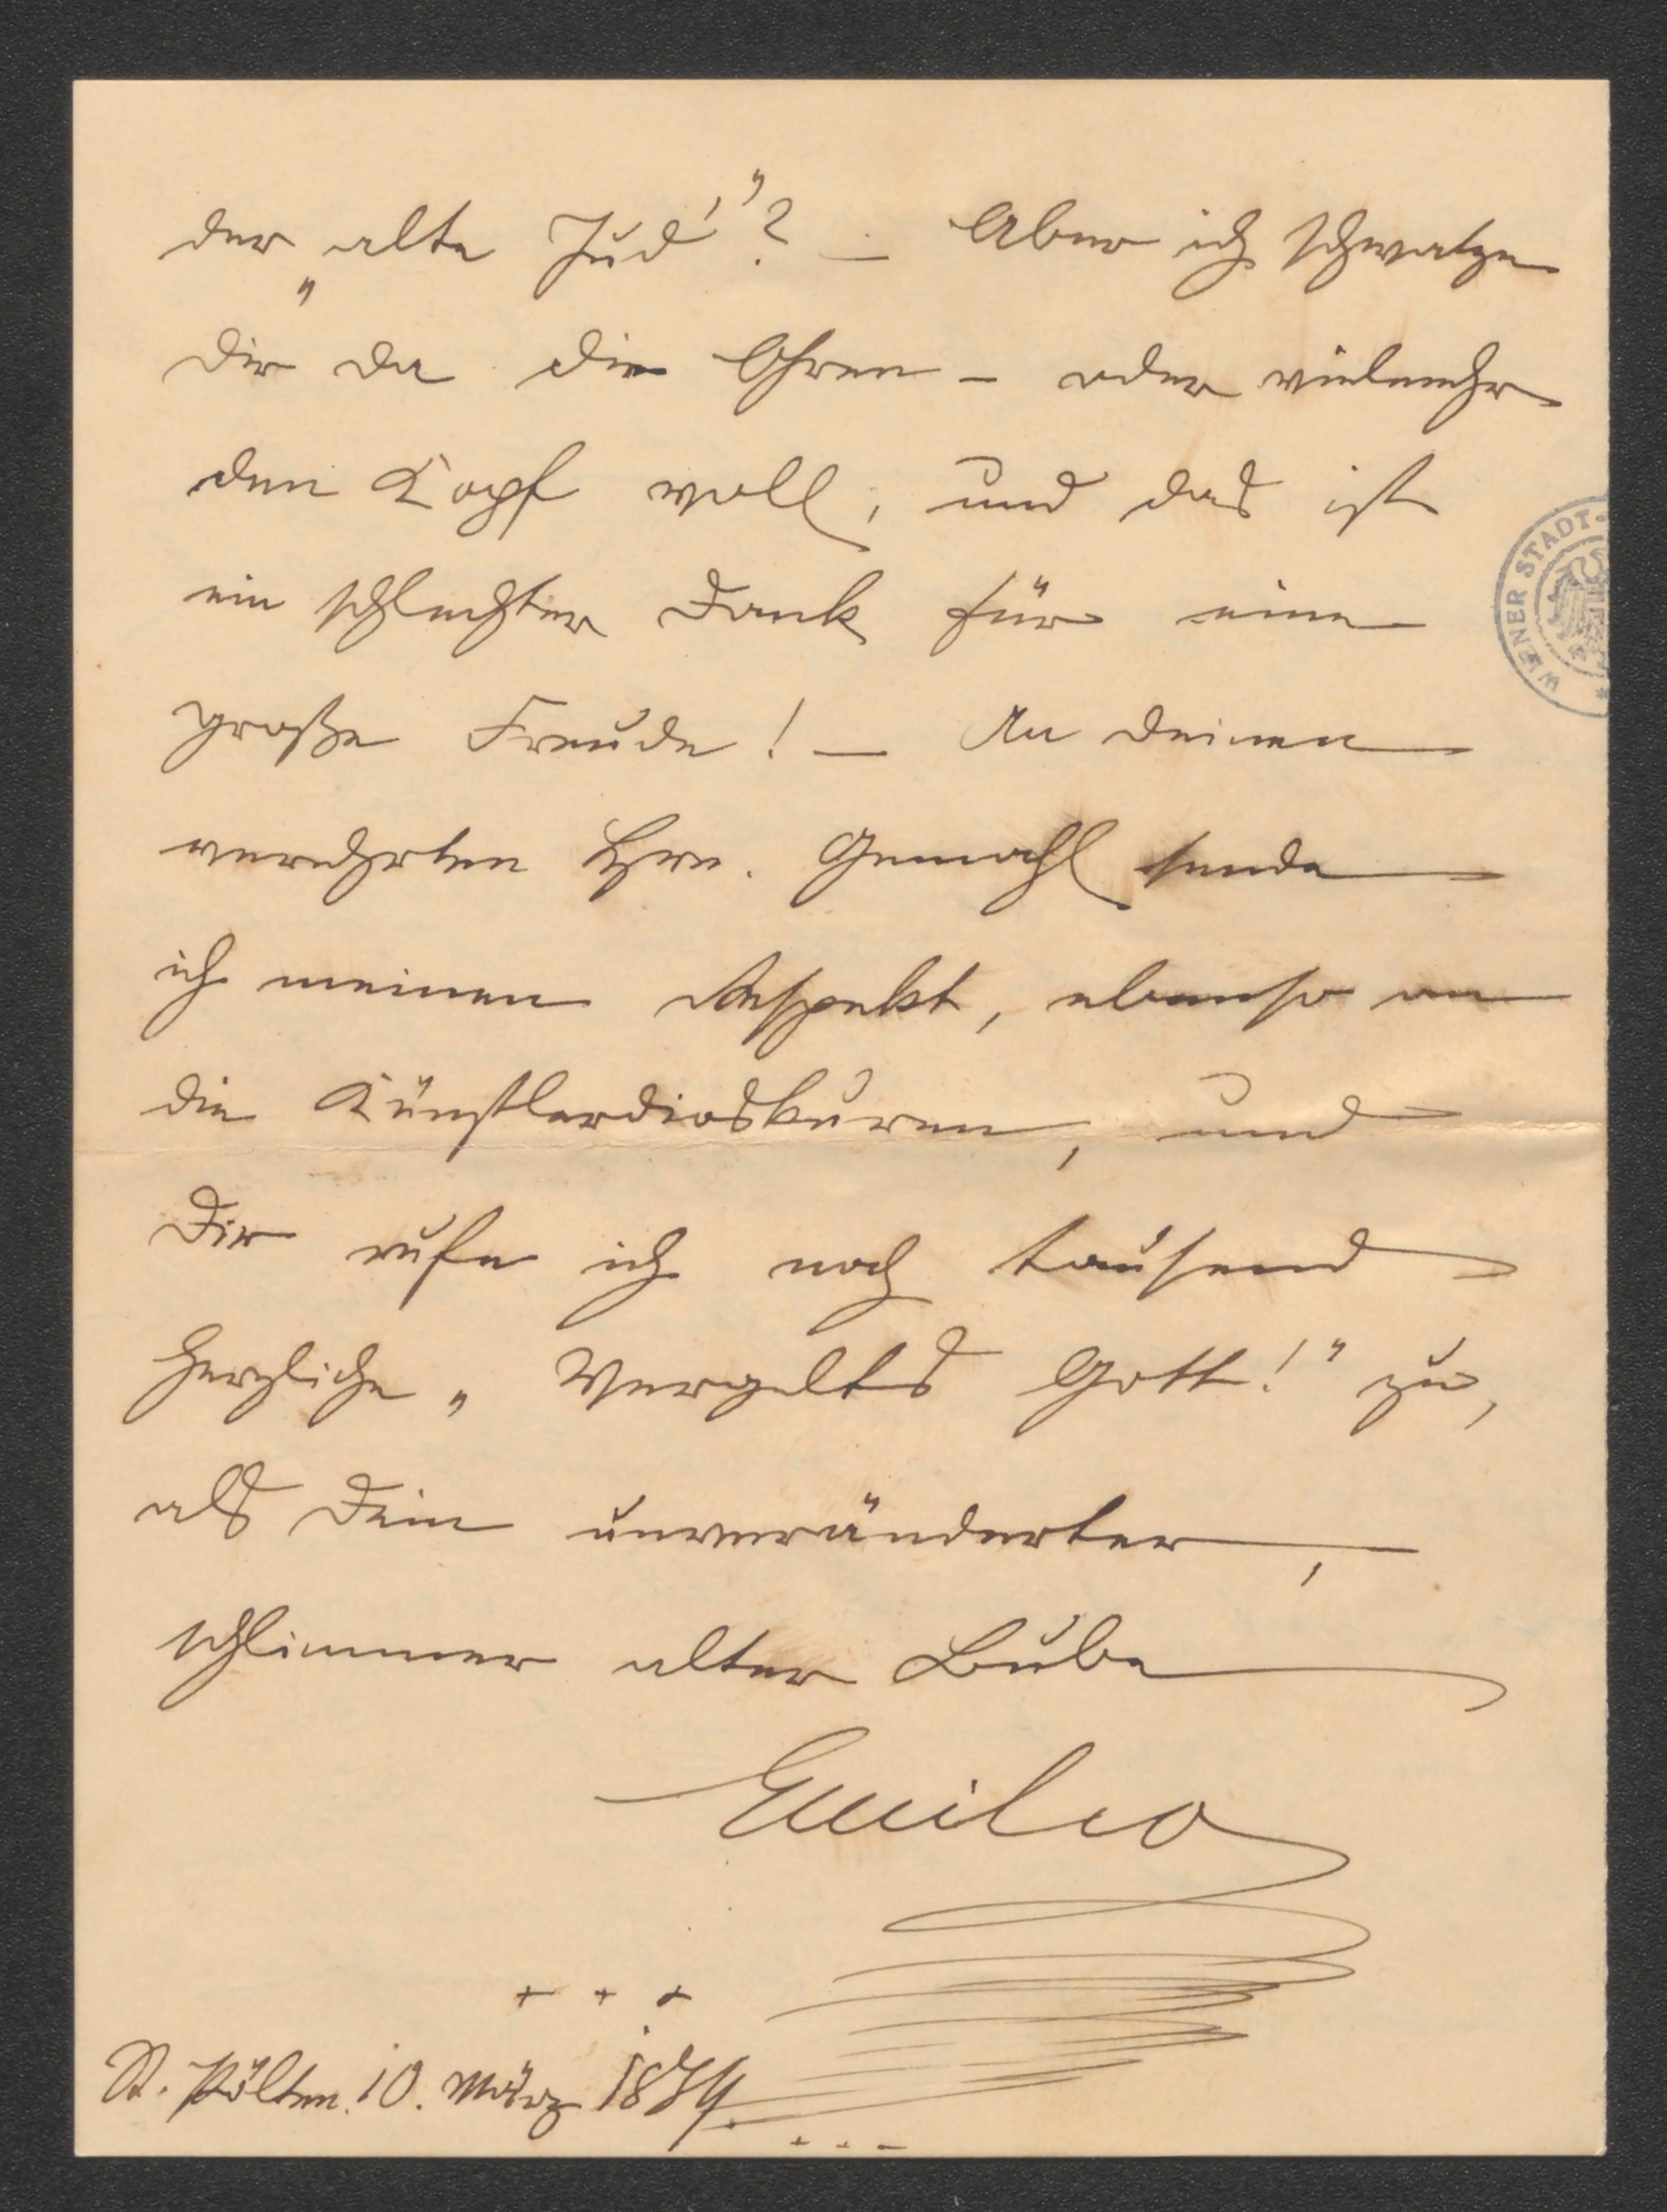 der „alte Jud'“? — Aber ich schwatze
dir da die Ohren – oder vielmehr
den Kopf voll, und das ist
ein schlechter Dank für eine
große Freude! — An deinen
verehrten Hrn. Gemahl sende
ich meinen Respekt, ebenso an
die Künstlerdioskuren, und
Dir rufe ich noch tausend
herzliche „Vergelts Gott!“ zu,
als Dein unveränderter,
schlimmer alter Bube
Emilio
+ + +
St. Pölten. 10. März 1879.
WIENER STADT-